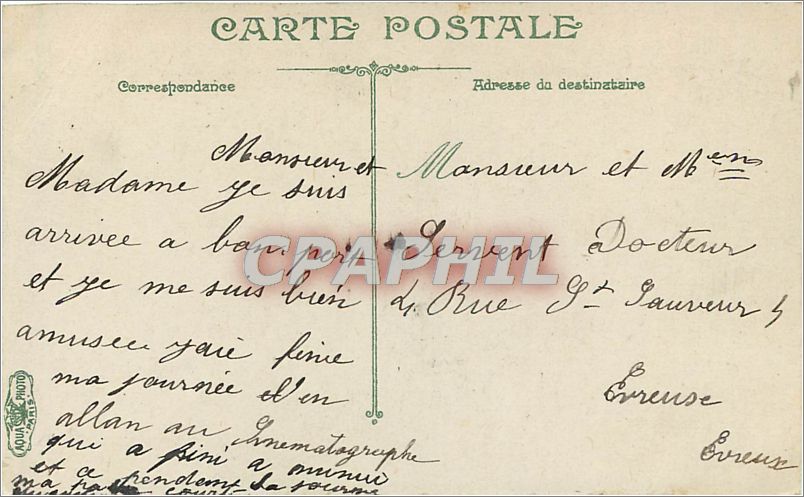 CARTE POSTALE
Correspondance
Adresse du destinataire
Monsieur et
Madame je suis
arrivée a bon port
et je me suis bien
amusee jaie finie
ma journée den
allan au Sinematographe
qui a fini a minui
et ce pendent la journe
ma
Monsieur et Mem
Servent Docteur
4 Rue St Sauveur 4
Evreuse
Evreux
CPAPHIL
AQUA PHOTO
PARIS